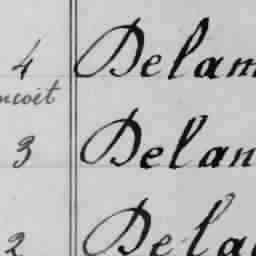 4 Delam
ncoit
3 Delan
2 Dela